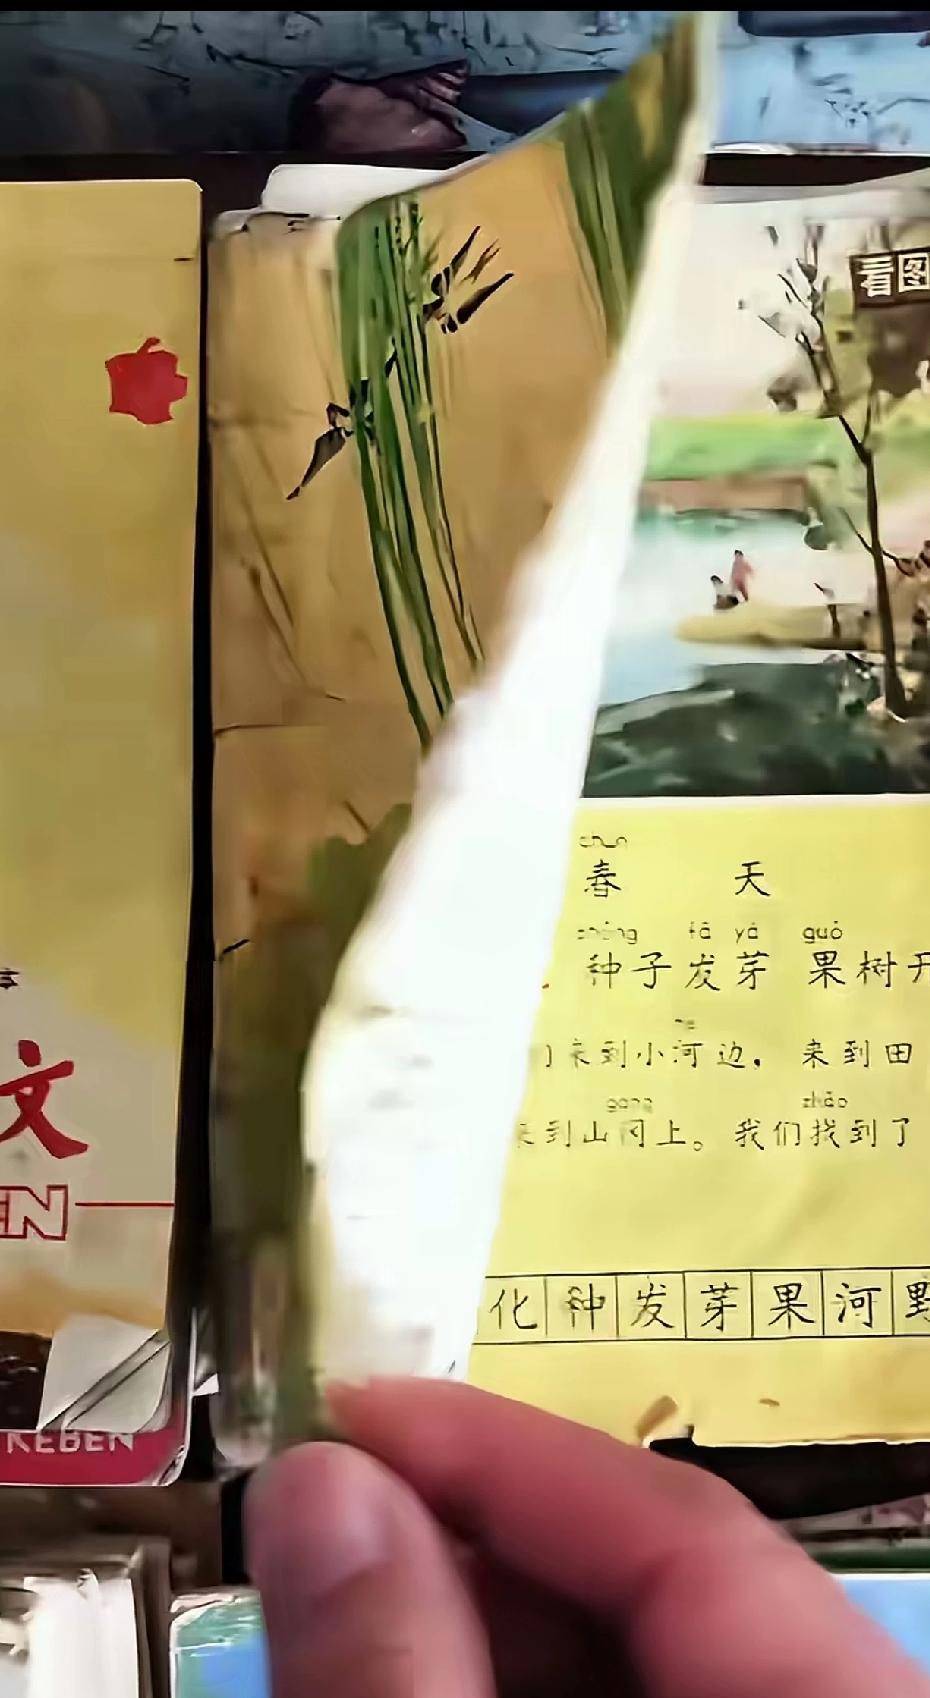 看图
文
KEBEN
chūn
春 天
zhǒng fā yá guǒ
种子发芽 果树开
hé
来到小河边，来到田
gāng zhǎo
来到山冈上。我们找到了
化种发芽果河野